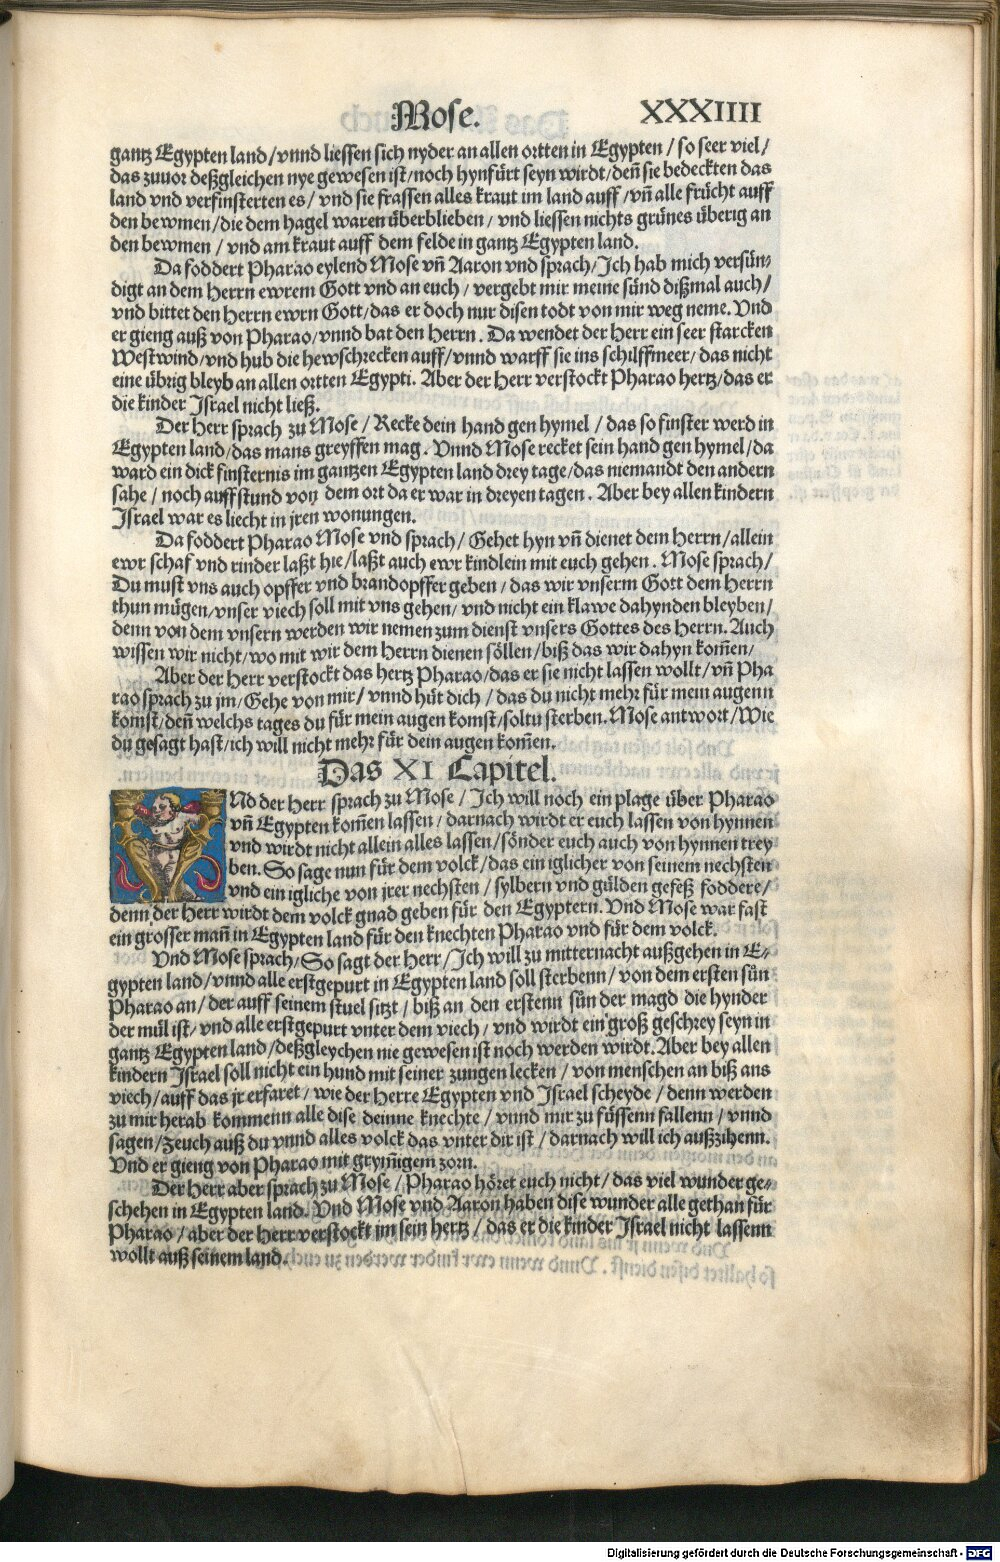 Mose. XXXIIII
gantz Egypten land/vnnd liessen sich nyder an allen ortten in Egypten / so seer viel/
das zuuor deßgleichen nye gewesen ist/noch hynfürt seyn wirdt/deñ sie bedeckten das
land vnd verfinsterten es/ vnd sie frassen alles kraut im land auff /vñ alle frücht auff
den bewmen/die dem hagel waren überblieben/ vnd liessen nichts grünes überig an
den bewmen / vnd am kraut auff dem felde in gantz Egypten land.
Da foddert Pharao eylend Mose vñ Aaron vnd sprach/Ich hab mich versün-
digt an dem Herrn ewrem Gott vnd an euch/ vergebt mir meine sünd dißmal auch/
vnd bittet den Herrn ewrn Gott/das er doch nur disen todt von mir weg neme. Vnd
er gieng auß von Pharao/vnnd bat den Herrn. Da wendet der Herr ein seer starcken
Westwind/vnd hub die hewschrecken auff/vnnd warff sie ins schilffmeer/das nicht
eine übrig bleyb an allen ortten Egypti. Aber der Herr verstockt Pharao hertz/das er
die kinder Israel nicht ließ.
Der Herr sprach zu Mose / Recke dein hand gen hymel / das so finster werd in
Egypten land/das mans greyffen mag. Vnnd Mose recket sein hand gen hymel/da
ward ein dick finsternis im gantzen Egypten land drey tage/das niemandt den andern
sahe / noch auffstund von dem ort da er war in dreyen tagen. Aber bey allen kindern
Israel war es liecht in jren wonungen.
Da foddert Pharao Mose vnd sprach/ Gehet hyn vñ dienet dem Herrn/allein
ewr schaf vnd rinder laßt hie/laßt auch ewr kindlein mit euch gehen. Mose sprach/
Du must vns auch opffer vnd brandopffer geben/ das wir vnserm Gott dem Herrn
thun mügen/vnser viech soll mit vns gehen/ vnd nicht ein klawe dahynden bleyben/
denn von dem vnsern werden wir nemen zum dienst vnsers Gottes des Herrn. Auch
wissen wir nicht/wo mit wir dem Herrn dienen söllen/biß das wir dahyn kom̃en/
Aber der Herr verstockt das hertz Pharao/das er sie nicht lassen wollt/vñ Pha
rao sprach zu jm/Gehe von mir/ vnnd hüt dich / das du nicht mehr für mein augenn
komst/deñ welchs tages du für mein augen komst/soltu sterben. Mose antwort/Wie
du gesagt hast/ich will nicht mehr für dein augen kom̃en.
Das XI Capitel.
VNd der Herr sprach zu Mose / Ich will noch ein plage über Pharao
vñ Egypten kom̃en lassen/ darnach wirdt er euch lassen von hynnen
vnd wirdt nicht allein alles lassen/sönder euch auch von hynnen trey
ben. So sage nun für dem volck/das ein iglicher von seinem nechsten
vnd ein igliche von jrer nechsten/ sylbern vnd gülden gefeß foddere/
denn der Herr wirdt dem volck gnad geben für den Egyptern. Vnd Mose war fast
ein grosser mañ in Egypten land für den knechten Pharao vnd für dem volck.
Vnd Mose sprach/So sagt der Herr/Ich will zu mitternacht außgehen in E-
gypten land/vnnd alle erstgepurt in Egypten land soll sterbenn/von dem ersten sün
Pharao an/der auff seinem stuel sitzt/ biß an den erstenn sün der magd die hynder
der mül ist/vnd alle erstgepurt vnter dem viech/ vnd wirdt ein groß geschrey seyn in
gantz Egypten land/deßgleychen nie gewesen ist noch werden wirdt. Aber bey allen
kindern Israel soll nicht ein hund mit seiner zungen lecken/von menschen an biß ans
viech/auff das jr erfaret/wie der Herre Egypten vnd Israel scheyde/denn werden
zu mir herab kommenn alle dise deinne knechte / vnnd mir zu füssenn fallenn/vnnd
sagen/Zeuch auß du vnnd alles volck das vnter dir ist / darnach will ich außzihenn.
Vnd er gieng von Pharao mit grym̃igem zorn.
Der Herr aber sprach zu Mose/ Pharao höret euch nicht/das viel wunder ge-
schehen in Egypten land. Vnd Mose vnd Aaron haben dise wunder alle gethan für
Pharao/aber der Herr verstockt jm sein hertz / das er die kinder Israel nicht lassenn
wollt auß seinem land.
Digitalisierung gefördert durch die Deutsche Forschungsgemeinschaft - DFG